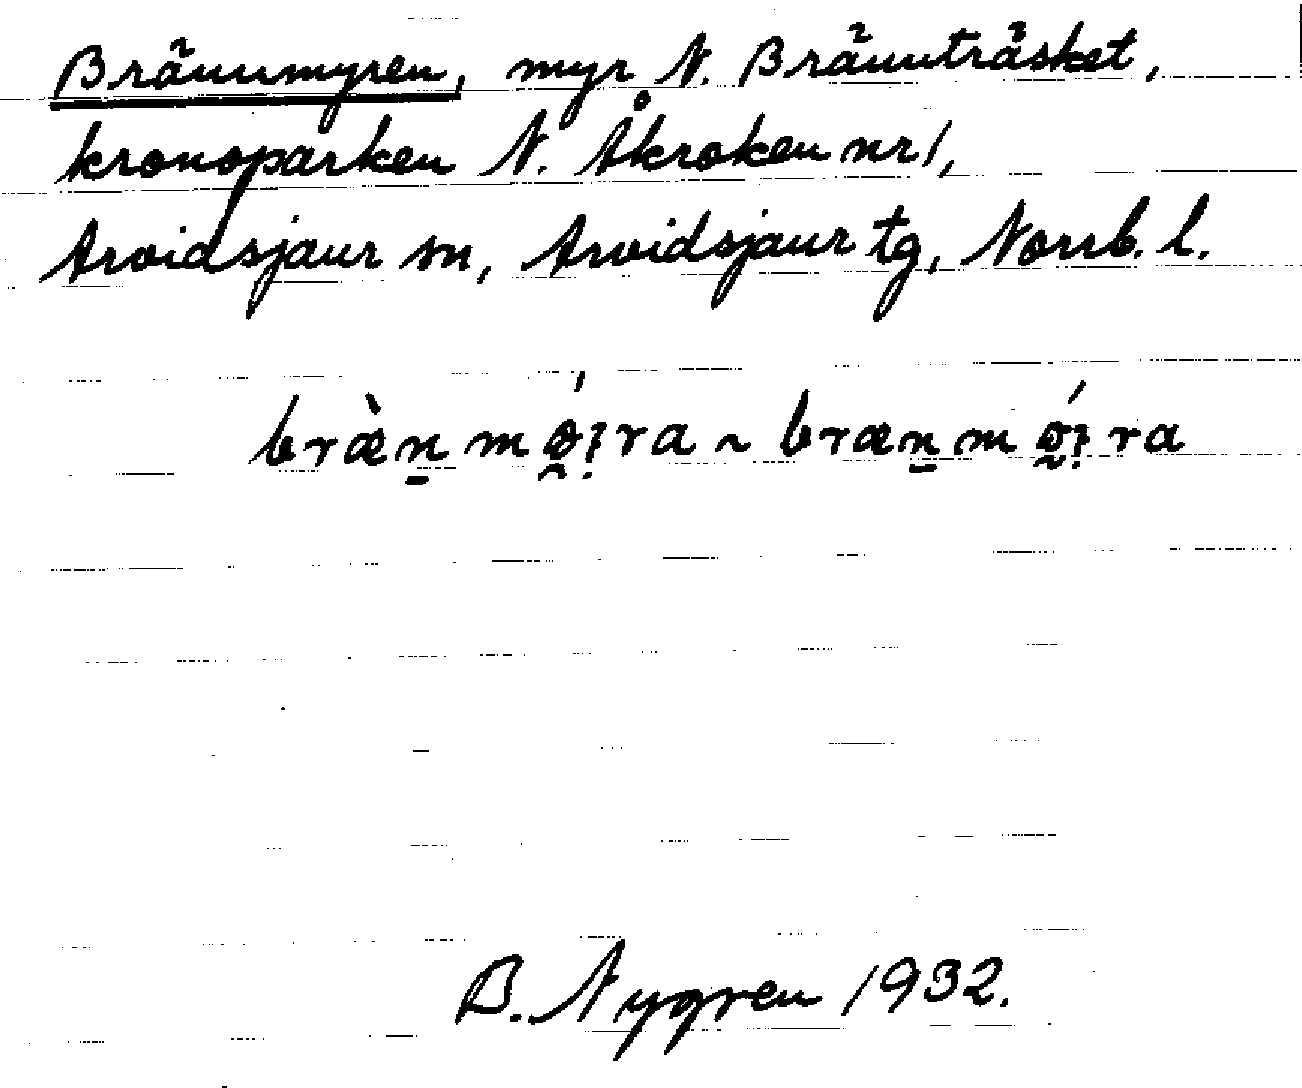 Brännmyren, myr N. Brännträsket,
kronoparken N. Åkroken nr 1,
Arvidsjaur sn, Arvidsjaur tg, Norrb. l.
B. Nygren 1932.